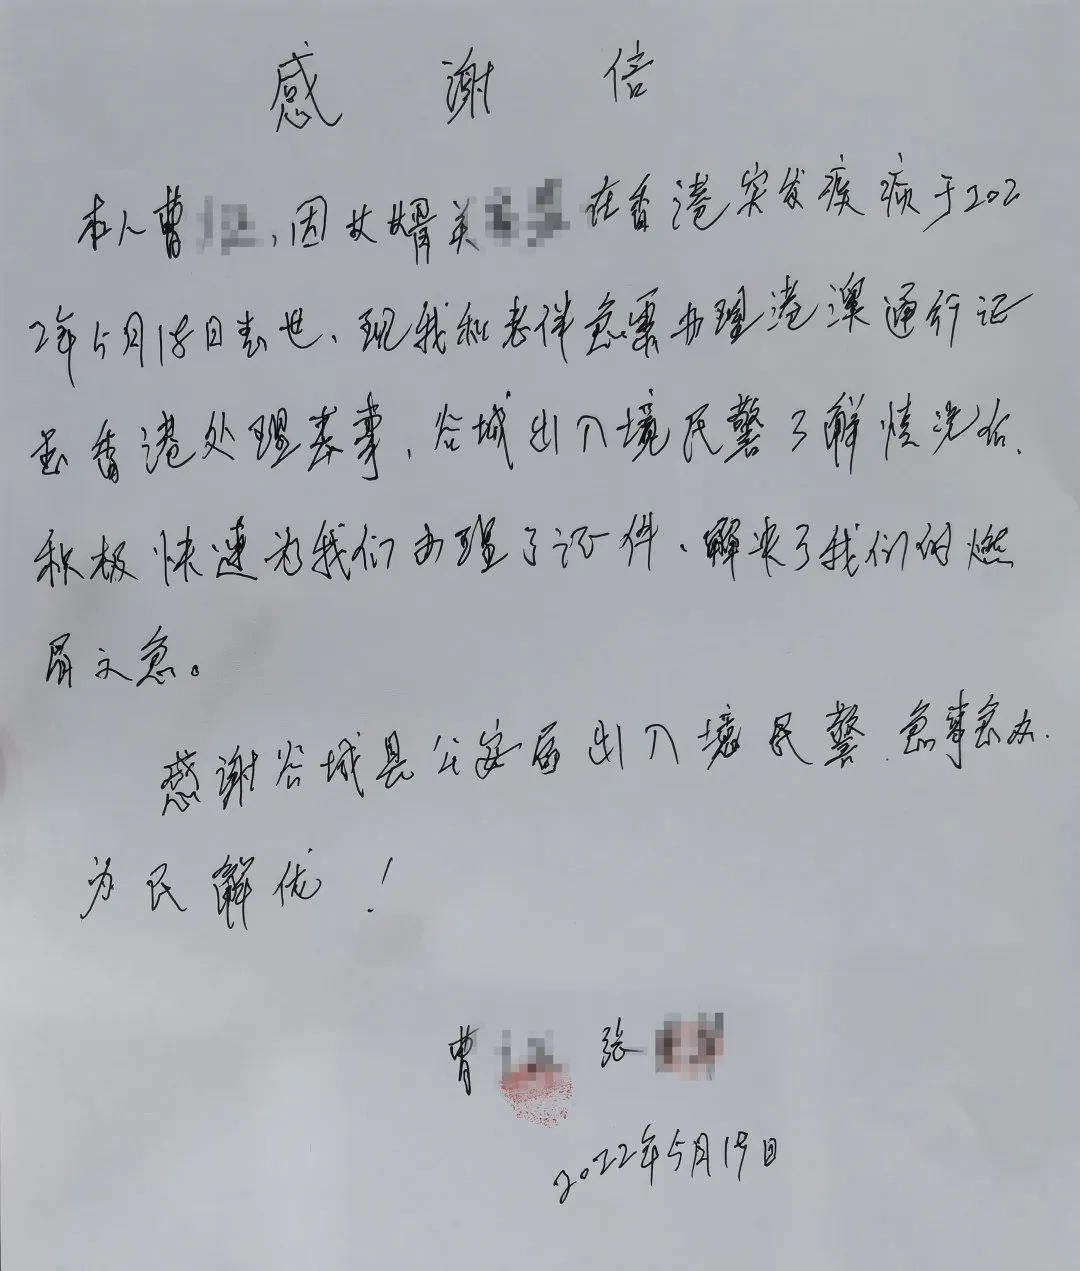 感谢信
本人曹,因女婿关在香港突发疾病于202
2年5月18日去世、现我和老伴急需办理港澳通行证
去香港处理丧事,谷城出入境民警了解情况后、
积极快速为我们办理了证件、解决了我们的燃
眉之急。
感谢谷城县公安局出入境民警急事急办.
为民解忧!
曹 张
2022年5月19日